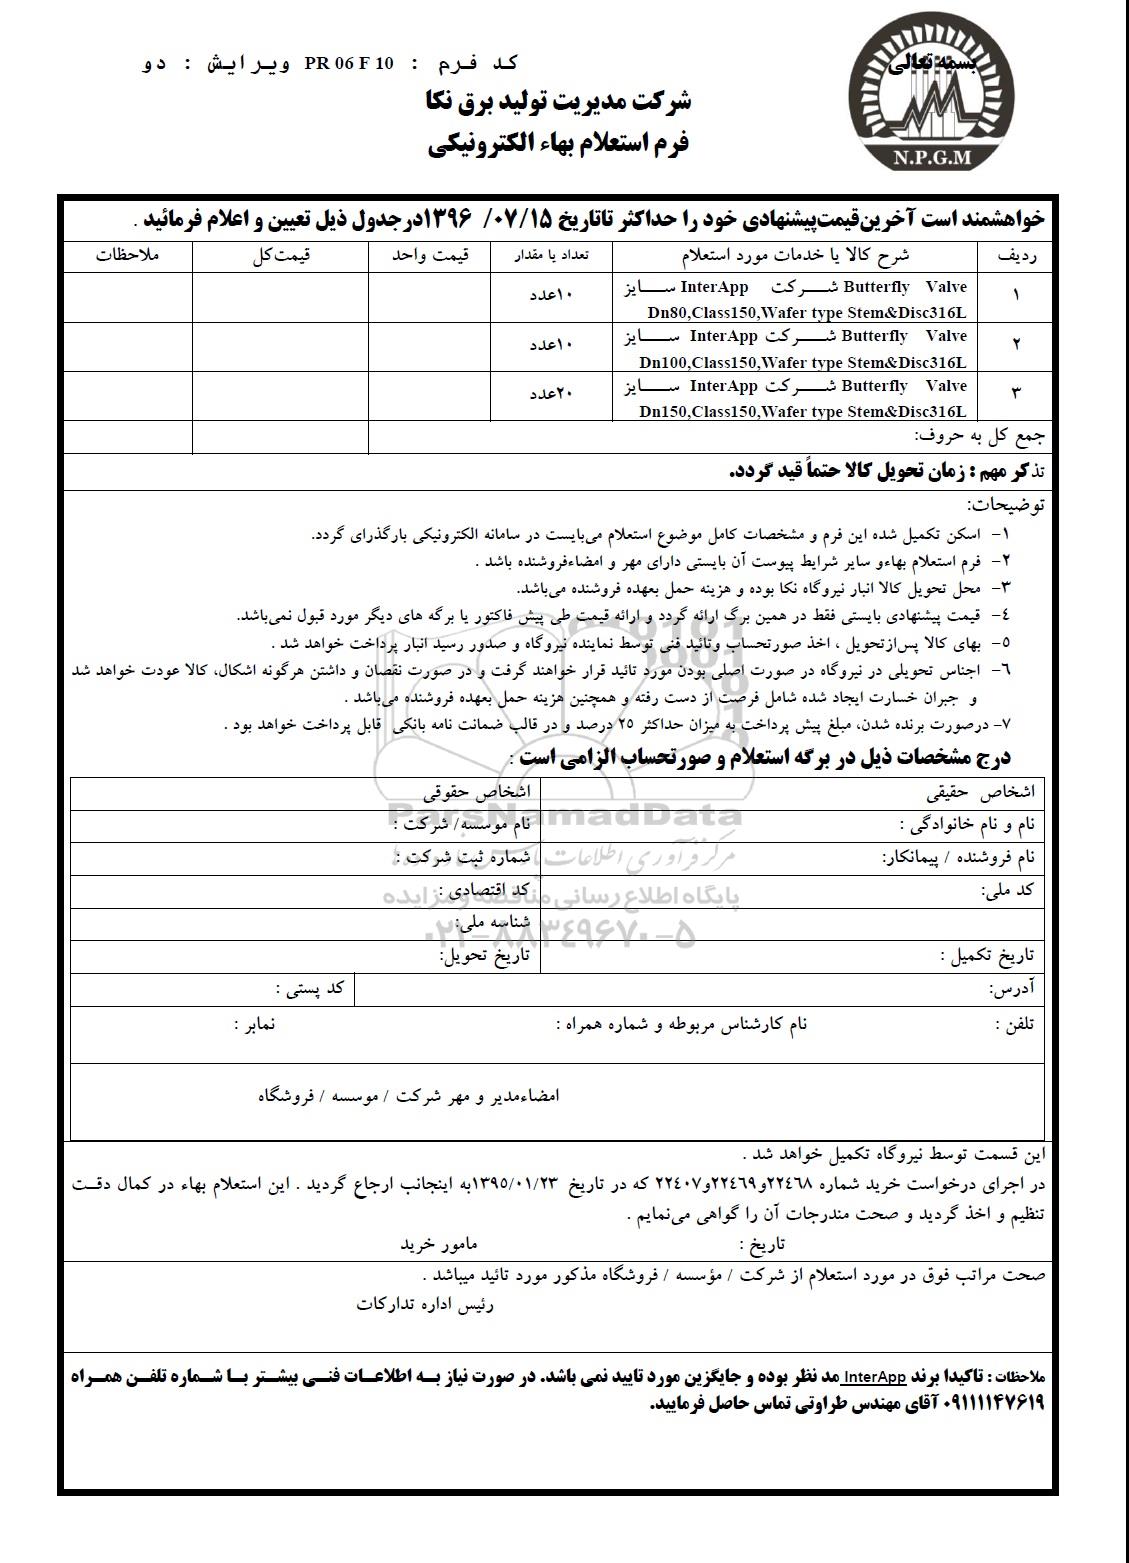 بسمه تعالی
N.P.G.M
کد فرم : PR 06 F 10 ویرایش : دو
شرکت مدیریت تولید برق نکا
فرم استعلام بهاء الکترونیکی
خواهشمند است آخرین‌قیمت‌پیشنهادی خود را حداکثر تاتاریخ ۰۷/۱۵/ ۱۳۹۶درجدول ذیل تعیین و اعلام فرمائید .
ردیف شرح کالا یا خدمات مورد استعلام تعداد یا مقدار قیمت واحد قیمت‌کل ملاحظات
۱ Butterfly Valve شرکت InterApp سایز ۱۰عدد
Dn80,Class150,Wafer type Stem&Disc316L
۲ Butterfly Valve شرکت InterApp سایز ۱۰عدد
Dn100,Class150,Wafer type Stem&Disc316L
۳ Butterfly Valve شرکت InterApp سایز ۲۰عدد
Dn150,Class150,Wafer type Stem&Disc316L
جمع کل به حروف:
تذکر مهم : زمان تحویل کالا حتماً قید گردد.
توضیحات:
۱- اسکن تکمیل شده این فرم و مشخصات کامل موضوع استعلام می‌بایست در سامانه الکترونیکی بارگذرای گردد.
۲- فرم استعلام بهاءو سایر شرایط پیوست آن بایستی دارای مهر و امضاءفروشنده باشد .
۳- محل تحویل کالا انبار نیروگاه نکا بوده و هزینه حمل بعهده فروشنده می‌باشد.
۴- قیمت پیشنهادی بایستی فقط در همین برگ ارائه گردد و ارائه قیمت طی پیش فاکتور یا برگه های دیگر مورد قبول نمی‌باشد.
۵- بهای کالا پس‌ازتحویل ، اخذ صورتحساب وتائید فنی توسط نماینده نیروگاه و صدور رسید انبار پرداخت خواهد شد .
۶- اجناس تحویلی در نیروگاه در صورت اصلی بودن مورد تائید قرار خواهند گرفت و در صورت نقصان و داشتن هرگونه اشکال، کالا عودت خواهد شد
و جبران خسارت ایجاد شده شامل فرصت از دست رفته و همچنین هزینه حمل بعهده فروشنده می‌باشد .
۷- درصورت برنده شدن، مبلغ پیش پرداخت به میزان حداکثر ۲۵ درصد و در قالب ضمانت نامه بانکی قابل پرداخت خواهد بود .
درج مشخصات ذیل در برگه استعلام و صورتحساب الزامی است :
اشخاص حقیقی اشخاص حقوقی
ParsNamadData
نام و نام خانوادگی : نام موسسه/ شرکت :
نام فروشنده / پیمانکار: شماره ثبت شرکت :
مرکز فرآوری اطلاعات پارس نماد داده ها
کد ملی: کد اقتصادی :
پایگاه اطلاع رسانی مناقصه و مزایده
شناسه ملی:
۰۲۱-۸۸۳۴۹۶۷۰-۵
تاریخ تکمیل : تاریخ تحویل:
آدرس: کد پستی :
تلفن : نام کارشناس مربوطه و شماره همراه : نمابر :
امضاءمدیر و مهر شرکت / موسسه / فروشگاه
این قسمت توسط نیروگاه تکمیل خواهد شد .
در اجرای درخواست خرید شماره ۲۲۴۶۸و۲۲۴۶۹و۲۲۴۰۷ که در تاریخ ۱۳۹۵/۰۱/۲۳به اینجانب ارجاع گردید . این استعلام بهاء در کمال دقت
تنظیم و اخذ گردید و صحت مندرجات آن را گواهی می‌نمایم .
تاریخ : مامور خرید
صحت مراتب فوق در مورد استعلام از شرکت / مؤسسه / فروشگاه مذکور مورد تائید میباشد .
رئیس اداره تدارکات
ملاحظات : تاکیدا برند InterApp مد نظر بوده و جایگزین مورد تایید نمی باشد. در صورت نیاز به اطلاعات فنی بیشتر با شماره تلفن همراه
۰۹۱۱۱۱۴۷۶۱۹ آقای مهندس طراوتی تماس حاصل فرمایید.